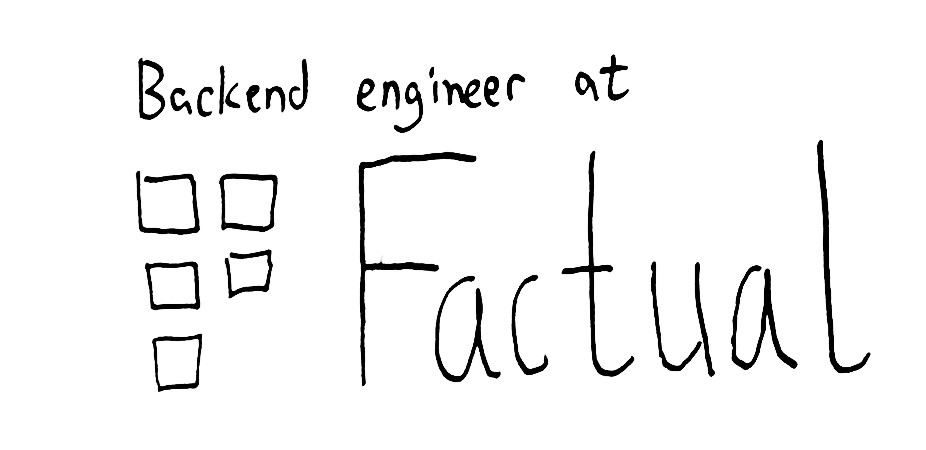 Backend engineer at
Factual